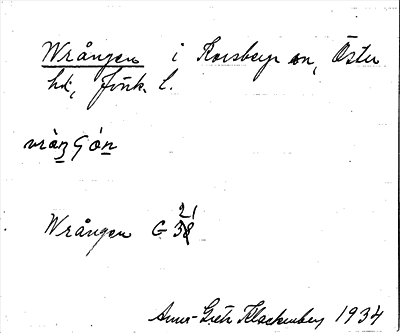 Wrången i Korsberga sn, Östra
hd, Jönk. l.
vràŋgón
Wrången G 21 38
Anna-Greta Klackenberg 1934